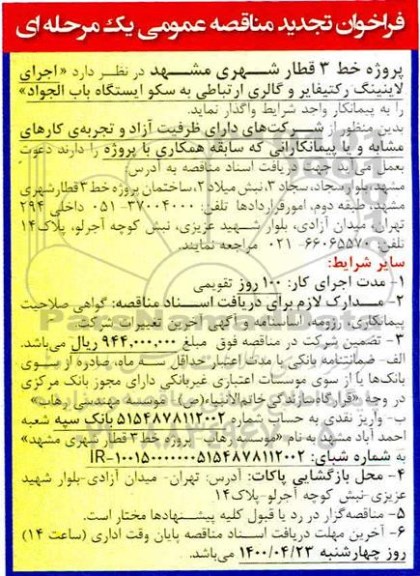 فراخوان تجدید مناقصه عمومی یک مرحله ای
پروژه خط ۳ قطار شهری مشهد در نظر دارد «اجرای
لاینینگ رکتیفایر و گالری ارتباطی به سکو ایستگاه باب الجواد»
را به پیمانکار واجد شرایط واگذار نماید.
بدین منظور از شرکت‌های دارای ظرفیت آزاد و تجربه‌ی کارهای
مشابه و یا پیمانکارانی که سابقه همکاری با پروژه را دارند دعوت
بعمل می آید جهت دریافت اسناد مناقصه به آدرس:
مشهد، بلوار سجاد، سجاد ۳، نبش میلاد ۲، ساختمان پروژه خط ۳ قطار شهری
مشهد، طبقه دوم، امور قراردادها تلفن: ۳۷۰۰۴۰۰۰-۰۵۱ داخلی ۲۹۴
تهران، میدان آزادی، بلوار شهید عزیزی، نبش کوچه آجرلو، پلاک ۱۴
تلفن: ۶۶۰۶۵۵۷۰-۰۲۱ مراجعه نمایند.
سایر شرایط:
۱- مدت اجرای کار: ۱۰۰ روز تقویمی
۲- مدارک لازم برای دریافت اسناد مناقصه: گواهی صلاحیت
پیمانکاری، رزومه، اساسنامه و آگهی آخرین تغییرات شرکت.
۳- تضمین شرکت در مناقصه فوق مبلغ ۹۴۴,۰۰۰,۰۰۰ ریال می‌باشد.
الف- ضمانتنامه بانکی با مدت اعتبار حداقل سه ماه، صادره از سوی
بانک‌ها یا از سوی موسسات اعتباری غیربانکی دارای مجوز بانک مرکزی
در وجه «قرارگاه سازندگی خاتم الانبیاء (ص) - موسسه مهندسی رهاب»
ب- واریز نقدی به حساب شماره ۵۱۵۴۸۷۸۱۱۲۰۰۲ بانک سپه شعبه
احمد آباد مشهد به نام «موسسه رهاب - پروژه خط ۳ قطار شهری مشهد»
به شماره شبای: IR-۱۰۰۱۵۰۰۰۰۰۰۵۱۵۴۸۷۸۱۱۲۰۰۲
۴- محل بازگشایی پاکات: آدرس: تهران- میدان آزادی-بلوار شهید
عزیزی-نبش کوچه آجرلو-پلاک ۱۴
۵- مناقصه‌گزار در رد یا قبول کلیه پیشنهادها مختار است.
۶- آخرین مهلت دریافت اسناد مناقصه پایان وقت اداری (ساعت ۱۴)
روز چهارشنبه ۱۴۰۰/۰۴/۲۳ می‌باشد.